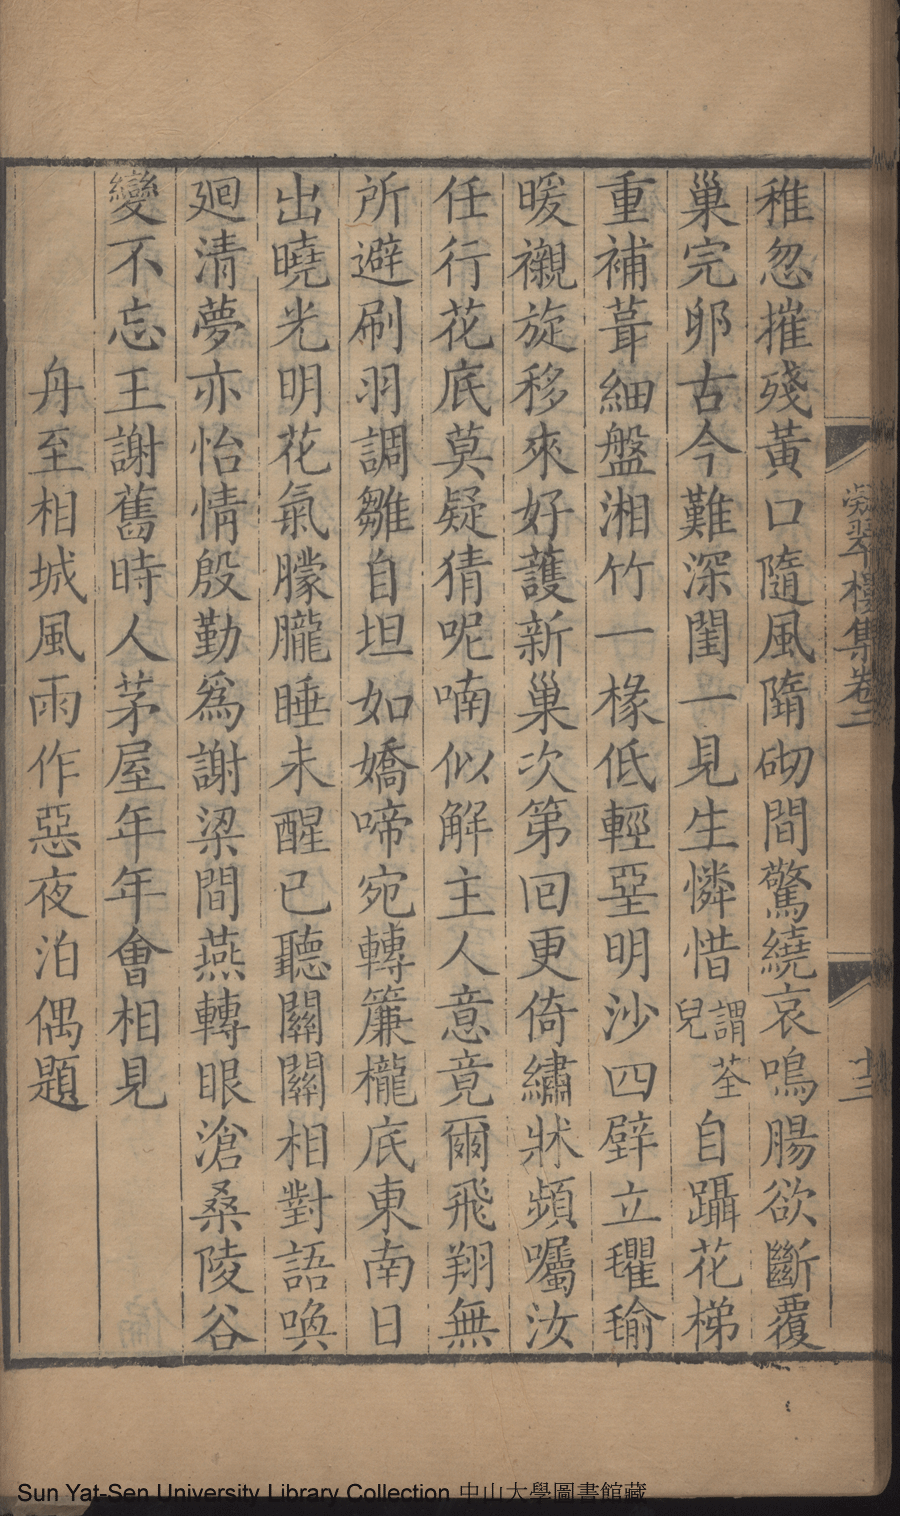 凝翠樓集卷二
十二
稚忽摧殘黃口隨風隋砌間驚繞哀鳴腸欲斷覆
巢完卵古今難深閨一見生憐惜謂荃兒自躡花梯
重補葺細盤湘竹一椽低輕堊明沙四壁立瓘瑜
暖襯旋移來好護新巢次第回更倚繡牀頻囑汝
任行花底莫疑猜呢喃似解主人意竟爾飛翔無
所避刷羽調雛自坦如嬌啼宛轉簾櫳底東南日
出曉光明花氣朦朧睡未醒已聽關關相對語喚
廻清夢亦怡情殷勤爲謝梁間燕轉眼滄桑陵谷
變不忘王謝舊時人茅屋年年會相見
舟至相城風雨作惡夜泊偶題
Sun Yat-Sen University Library Collection 中山大學圖書館藏